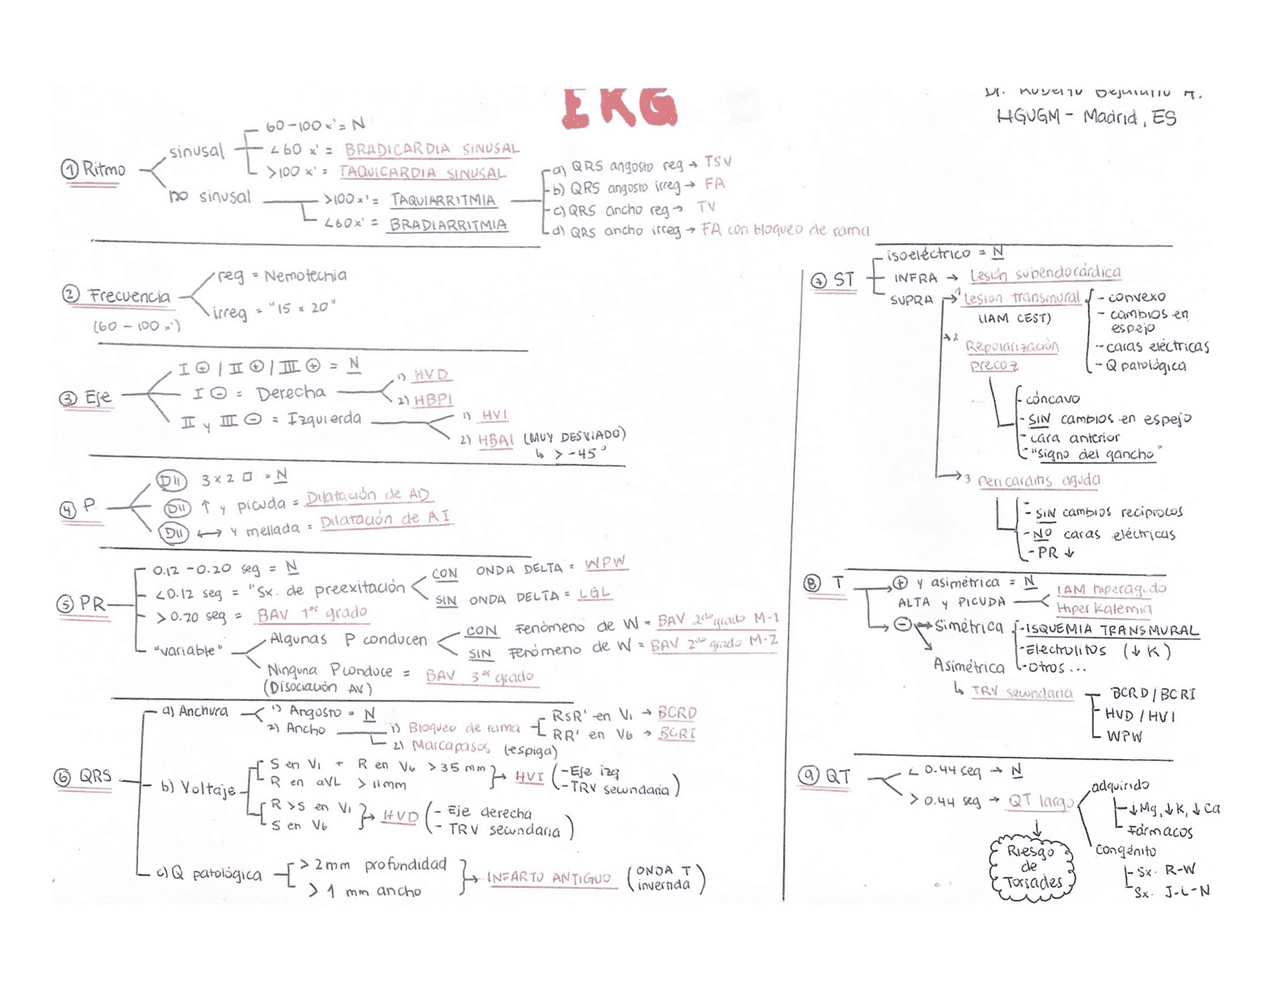 EKG
HGUGM - Madrid, ES
① Ritmo
sinusal
60-100 x' = N
<60 x' = BRADICARDIA SINUSAL
>100 x' = TAQUICARDIA SINUSAL
no sinusal
>100x' = TAQUIARRITMIA
<60x' = BRADIARRITMIA
a) QRS angosto reg → TSV
b) QRS angosto irreg → FA
c) QRS ancho reg → TV
d) QRS ancho irreg → FA con bloqueo de rama
② Frecuencia
(60-100 x')
reg = Nemotecnia
irreg = "15 x 20"
③ Eje
I ⊕ / II ⊕ / III ⊕ = N
I ⊖ = Derecha
1) HVD
2) HBPI
II y III ⊖ = Izquierda
1) HVI
2) HBAI (MUY DESVIADO)
↳ > -45°
④ P
DII 3 x 2 □ = N
DII ↑ y picuda = Dilatación de AD
DII ↔ y mellada = Dilatación de AI
⑤ PR
0.12 - 0.20 seg = N
<0.12 seg = "Sx. de preexitación
CON ONDA DELTA = WPW
SIN ONDA DELTA = LGL
> 0.20 seg = BAV 1er grado
"variable"
Algunas P conducen
CON Fenómeno de W = BAV 2do grado M-1
SIN Fenómeno de W = BAV 2do grado M-2
Ninguna P conduce = BAV 3er grado
(Disociación AV)
⑥ QRS
a) Anchura
1) Angosto = N
2) Ancho
1) Bloqueo de rama
RSR' en V1 → BCRD
RR' en V6 → BCRI
2) Marcapasos (espiga)
b) Voltaje
S en V1 + R en V6 > 35 mm
R en aVL > 11mm
→ HVI
(-Eje izq
-TRV secundaria)
R > S en V1
S en V6
→ HVD
(- Eje derecha
- TRV secundaria)
c) Q patológica
> 2mm profundidad
> 1 mm ancho
→ INFARTO ANTIGUO
(ONDA T
invertida)
⑦ ST
isoeléctrico = N
INFRA → Lesión subendocárdica
SUPRA
1 Lesión transmural
(IAM CEST)
- convexo
- cambios en
espejo
- caras eléctricas
- Q patológica
2 Repolarización
precoz
- cóncavo
- SIN cambios en espejo
- cara anterior
- "signo del gancho"
3 Pericarditis aguda
- SIN cambios recíprocos
- NO caras eléctricas
- PR ↓
⑧ T
⊕ y asimétrica = N
ALTA y PICUDA
IAM hiperagudo
Hiperkalemia
⊖ → Simétrica
- ISQUEMIA TRANSMURAL
- Electrolitos (↓ K)
- Otros ...
Asimétrica
↳ TRV secundaria
BCRD / BCRI
HVD / HVI
WPW
⑨ QT
< 0.44 seg → N
> 0.44 seg → QT largo
adquirido
- ↓Mg, ↓K, ↓Ca
- Fármacos
congénito
- Sx. R-W
Sx. J-L-N
Riesgo
de
Torsades